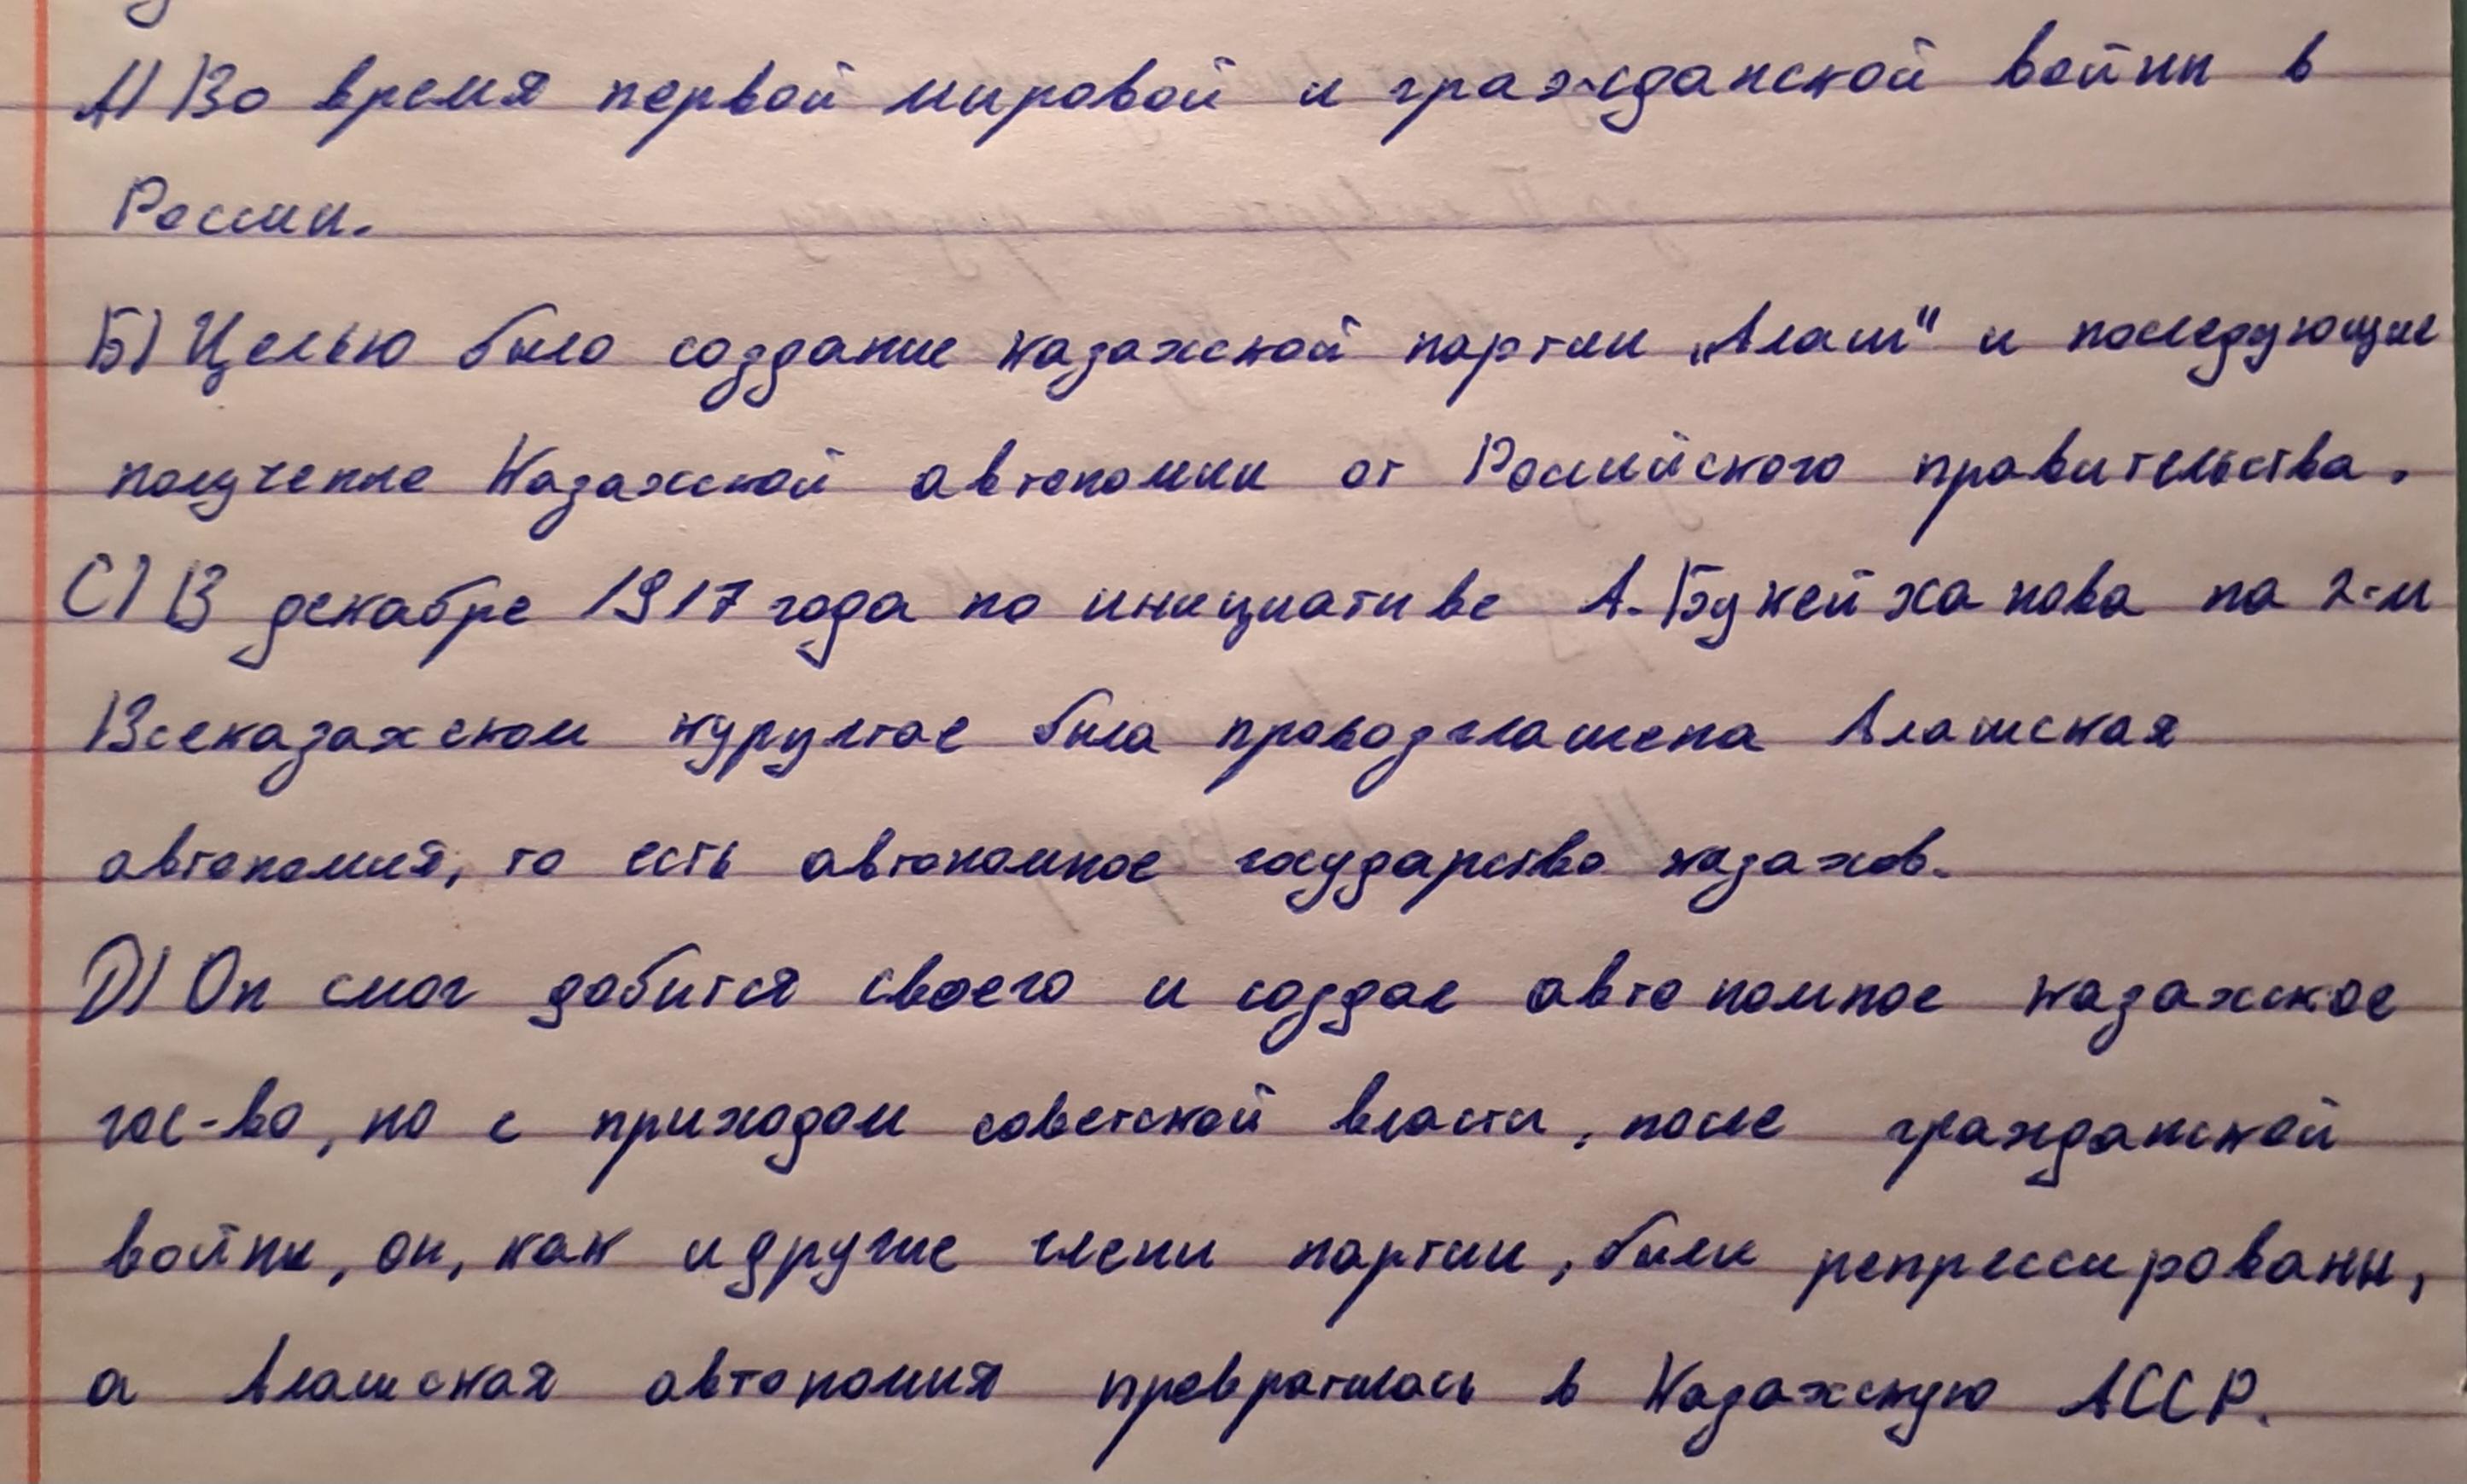 А) Во время первой мировой и гражданской войны в
России.
Б) Целью было создание казахской партии „Алаш" и последующие
получение Казахской автономии от Российского правительства.
С) В декабре 1917 года по инициативе А. Букейханова на 2-м
Всеказахском курултае была провозглашена Алашская
автономия, то есть автономное государство казахов.
D) Он смог добится своего и создал автономное казахское
гос-во, но с приходом советской власти, после гражданской
войны, он, как и другие члены партии, были репрессированы,
а Алашская автономия превратилась в Казахскую АССР.